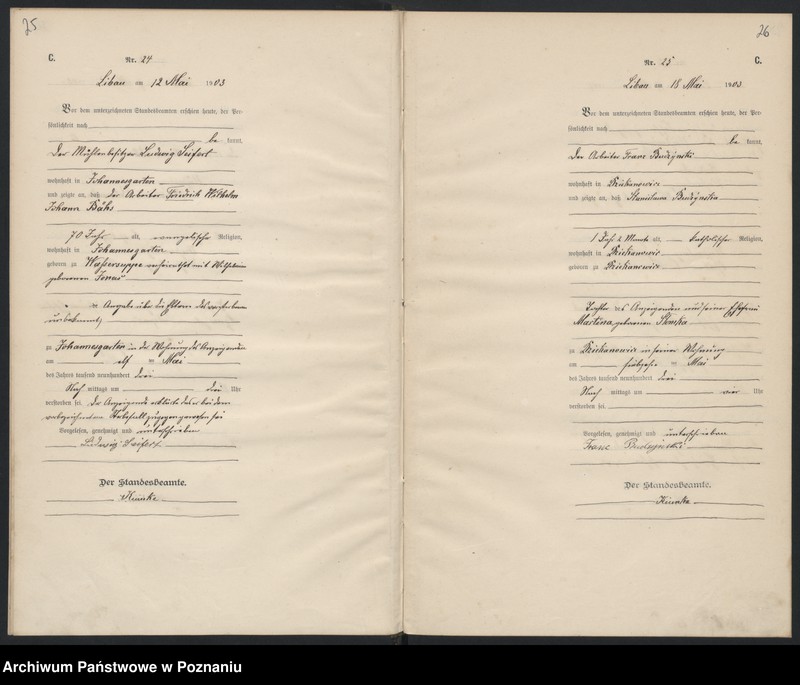 25
C.
Nr. 24
Libau am 12 Mai 1903
Vor dem unterzeichneten Standesbeamten erschien heute, der Per-
sönlichkeit nach
be kannt,
Der Mühlenbesitzer Ludwig Seifert
wohnhaft in Johannesgarten
und zeigte an, daß der Arbeiter Friedrich Wilhelm
Johann Bähs
70 Jahr alt, evangelischer Religion,
wohnhaft in Johannesgarten
geboren zu verheirathet mit Wilhelmine
geborenen Jonas
Angabe über die Eltern des verstorbenen
unbekannt,
zu Johannesgarten in der Wohnung des Anzeigenden
am elf ten Mai
des Jahrs tausend neunhundert drei
Nach mittags um drei Uhr
verstorben sei. Der Anzeigende erklärte daß er bei dem
vorbezeichneten Sterbefall zugegen gewesen sei
Vorgelesen, genehmigt und unterschrieben
Ludwig Seifert
Der Standesbeamte.
26
Nr. 25
C.
Libau am 18 Mai 1903
Vor dem unterzeichneten Standesbeamten erschien heute, der Per-
sönlichkeit nach
be kannt,
Der Arbeiter Franz Budzynski
wohnhaft in Dziekanowice
und zeigte an, daß Stanislawa Budzynska
1 Jahr 2 Monate alt, katholischer Religion,
wohnhaft in Dziekanowice
geboren zu Dziekanowice
Tochter des Anzeigenden und seiner Ehefrau
Martina geborenen
zu Dziekanowice in seiner Wohnung
am ten Mai
des Jahrs tausend neunhundert drei
Nach mittags um vier Uhr
verstorben sei.
Vorgelesen, genehmigt und unterschrieben
Franz Budzynski
Der Standesbeamte.
Archiwum Państwowe w Poznaniu